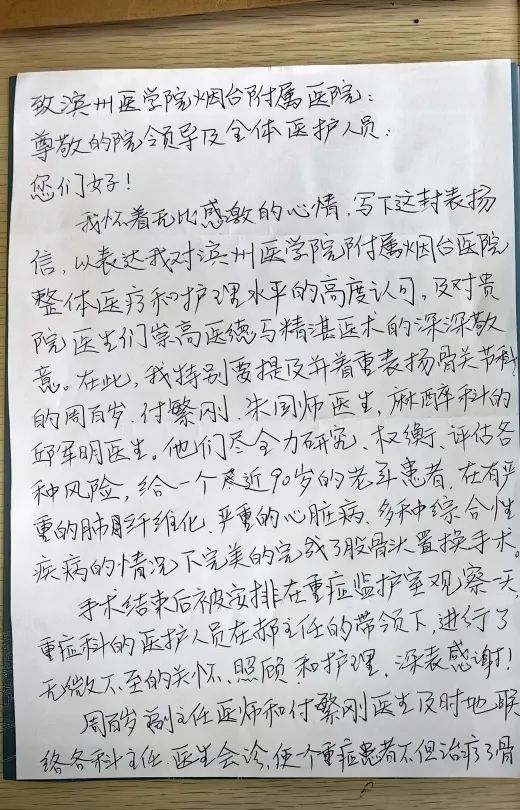 致滨州医学院烟台附属医院：
尊敬的院领导及全体医护人员：
您们好！
我怀着无比感激的心情，写下这封表扬
信，以表达我对滨州医学院附属烟台医院
整体医疗和护理水平的高度认可，及对贵
院医生们崇高医德与精湛医术的深深敬
意。在此，我特别要提及并着重表扬骨关节科
的周百岁、付繁刚、朱国师医生，麻醉科的
邱军明医生。他们尽全力研究、权衡、评估各
种风险，给一个近90岁的老年患者，在有严
重的肺部纤维化、严重的心脏病、多种综合性
疾病的情况下完美的完成了股骨头置换手术。
手术结束后被安排在重症监护室观察一天，
重症科的医护人员在郝主任的带领下，进行了
无微不至的关怀、照顾和护理，深表感谢！
周百岁副主任医师和付繁刚医生及时地联
络各科主任、医生会诊，使一个重症患者不但治疗了骨